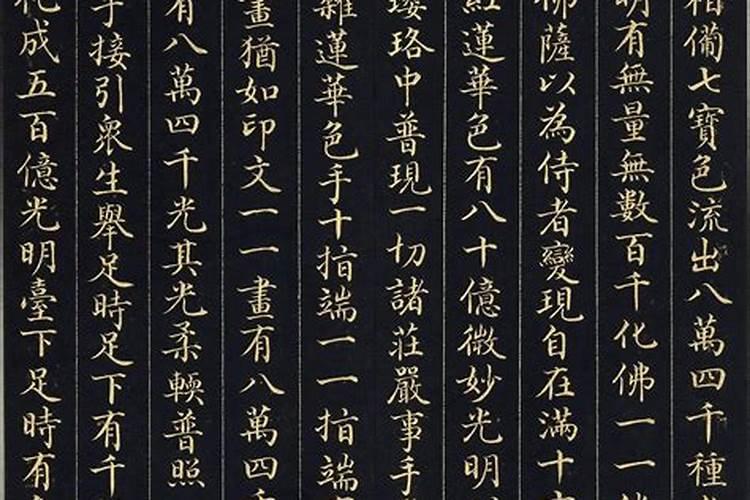 備七寶色流出八萬四千種
有無量無數百千化佛一一
薩以為侍者變現自在滿十
蓮華色有八十億微妙光明
珞中普現一切諸莊嚴事手
蓮華色手十指端一一指端
畫猶如印文一一畫有八萬四
有八萬四千光其光柔輭普照
手接引衆生舉足時足下有千
成五百億光明臺下足時有